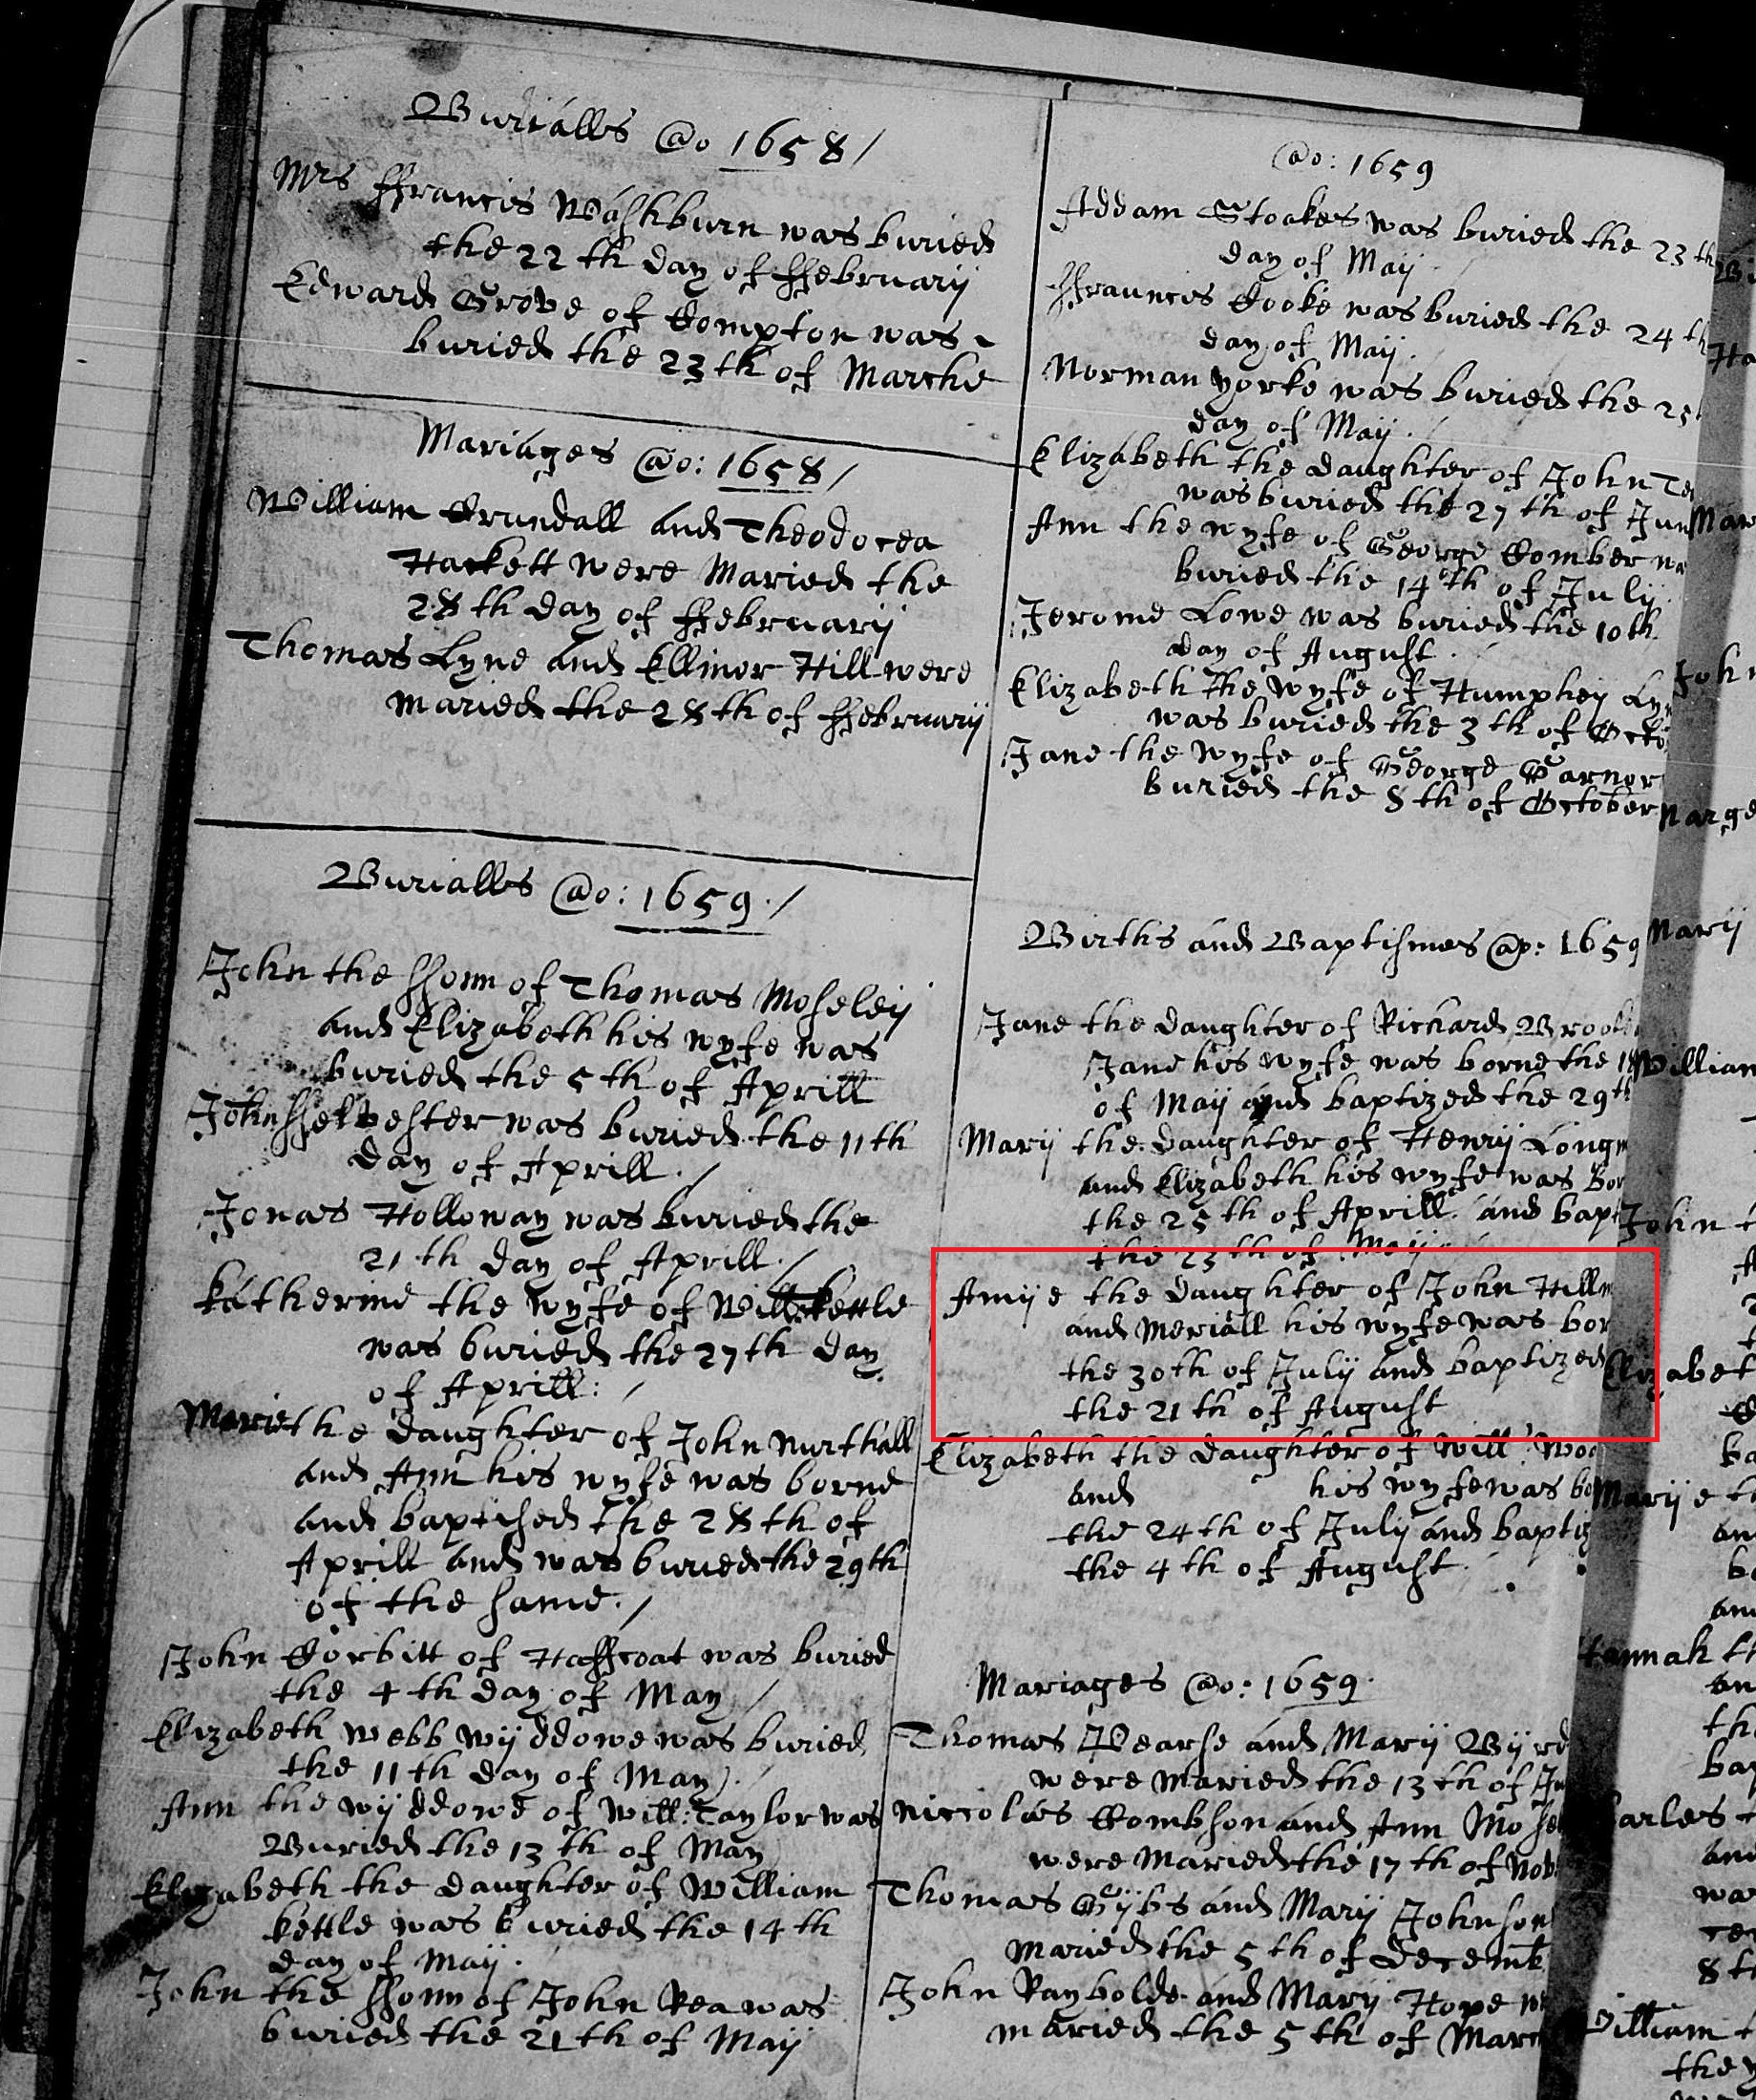 Burialls @o 1658 /
Mrs ffrancis Washburn was buried
the 22 th day of ffebruarij
Edward Grove of Compton was
buried the 23 th of Marche
Mariages @o: 1658 /
William Crundall and Theodocea
Hackett were Maried the
28 th day of ffebruarij
Thomas Lyne and Ellinor Hill were
maried the 28 th of ffebruarij
Burialls @o: 1659 /
John the sonn of Thomas Moseleij
and Elizabeth his wyfe was
buried the 5 th of Aprill
John was buried the 11th
day of Aprill /
Jonas Holloway was buried the
21 th day of Aprill /
Katherine the wyfe of Will: Kettle
was buried the 27th day
of Aprill: /
Marie the daughter of John Nurthall
and Ann his wyfe was borne
and baptised the 28 th of
Aprill and was buried the 29th
of the same. /
John Corbitt of was buried
the 4 th day of May /
Elizabeth Webb wijddowe was buried
the 11 th day of May).
Ann the wijddowe of Will: Taylor was
Buried the 13 th of May
Elizabeth the daughter of William
Kettle was buried the 14 th
day of Maij .
John the sonn of John Rea was
buried the 21 th of Maij
@o: 1659
Addam Stoakes was buried the 23 th
day of Maij
ffrauncis Cooke was buried the 24 th
day of Maij .
Norman Yorke was buried the 25
day of Maij .
Elizabeth the daughter of John
was buried the 27 th of Jun
Ann the wyfe of George Comber wa
buried the 14th of Julij
Jerome Lowe was buried the 10th
day of August .
Elizabeth the wyfe of Humphrey Lyn
was buried the 3 th of Octo
Jane the wyfe of George Garner
buried the 8 th of October
Births and Baptismes @o: 1659
Jane the daughter of Richard
Jane his wyfe was borne the
of Maij and baptized the 29th
Marij the daughter of Henrij Longm
and Elizabeth his wyfe was Bor
the 25 th of Aprill and bapt
the 23 th of Maij
Amije the daughter of John Hillm
and Meriall his wyfe was bor
the 30th of Julij and baptized
the 21 th of August
Elizabeth the daughter of Will: Woo
and his wyfe was bo
the 24th of Julij and baptiz
the 4 th of August
Mariages @o: 1659
Thomas Pearse and Marij Bijrd
were Maried the 13 th of
Niccolas Combson and Ann Mose
were Maried the 17 th of Nov
Thomas Gijbs and Marij Johnson
Maried the 5 th of Decemb
John Raybolde and Marij Hope w
maried the 5 th of Marc
Mar
John
Narge
Marij
William
John t
Elizabet
Marije t
an
Hannah t
an
th
bap
harles
and
wa
8 t
William t
the